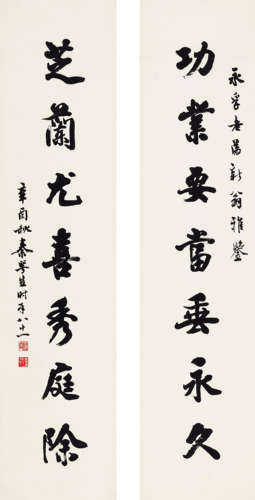 永孚新翁雅鑒
功業要當垂永久
芝蘭尤喜秀庭除
辛酉秋秦咢生时年八十一